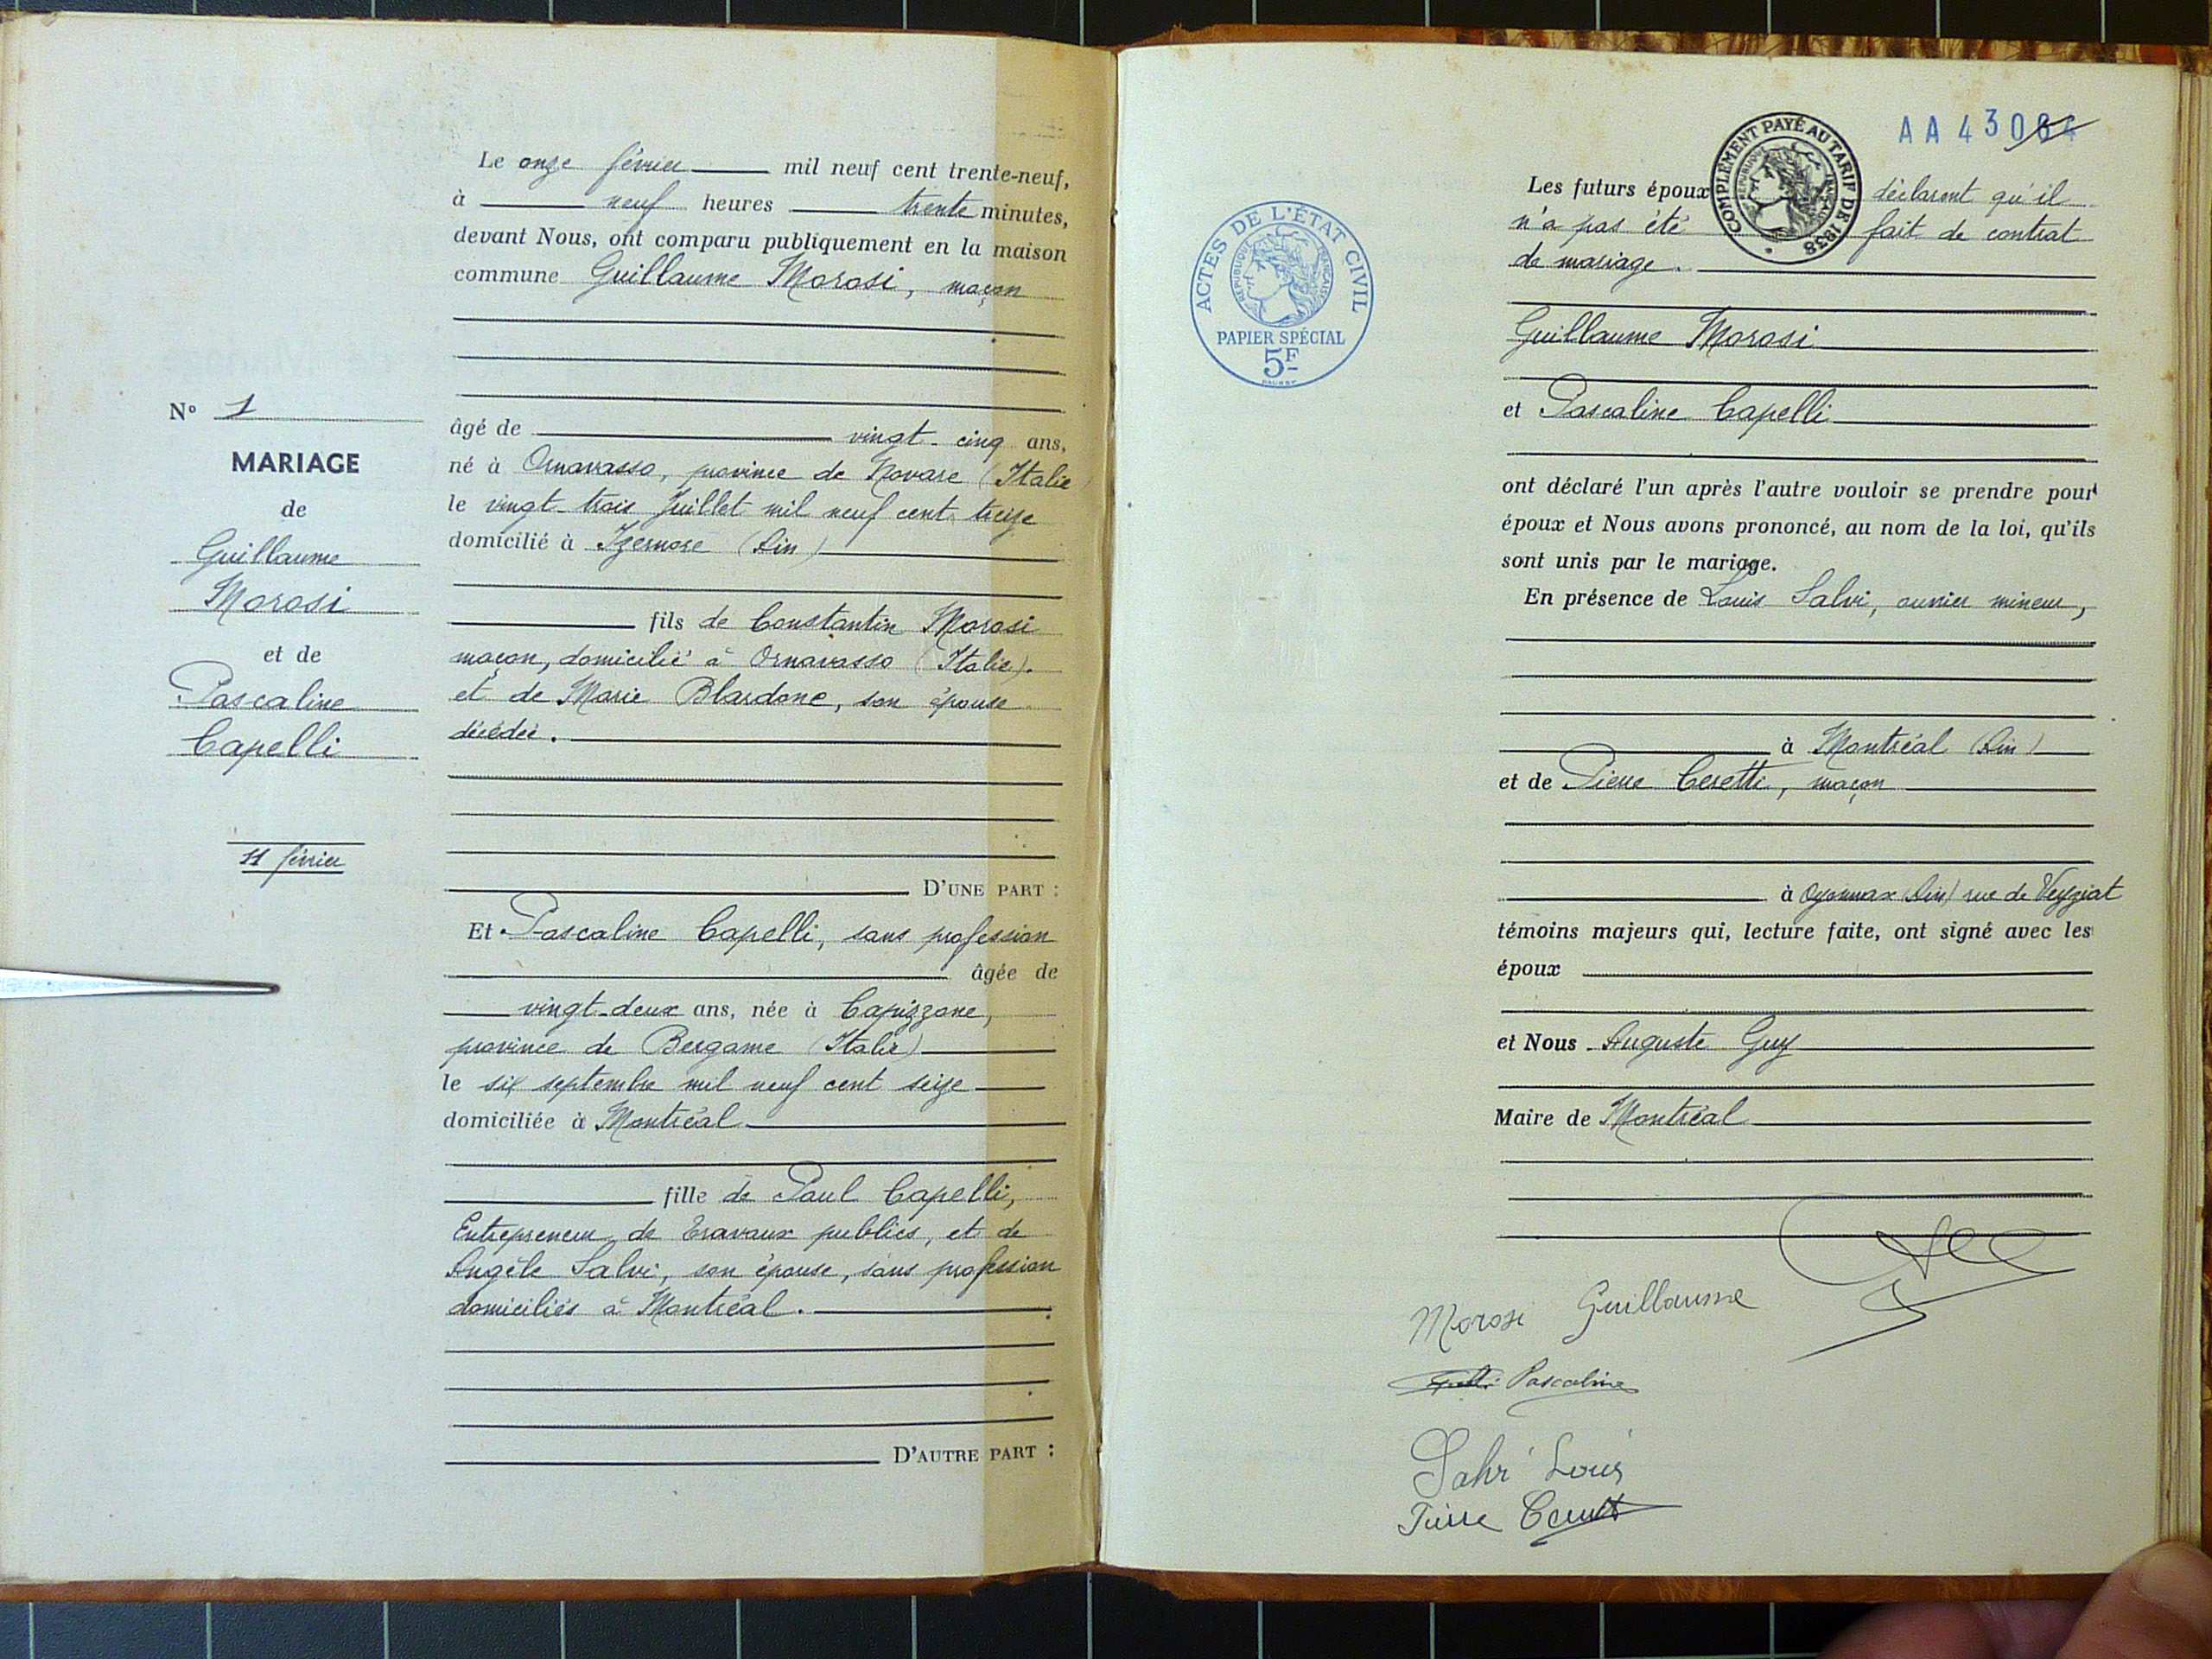 N° 1
MARIAGE
de
Guillaume
Morosi
et de
Pascaline
Capelli
11 février
Le onze février mil neuf cent trente-neuf,
à neuf heures trente minutes,
devant Nous, ont comparu publiquement en la maison
commune Guillaume Morosi, maçon
âgé de vingt-cinq ans,
né à Ornavasso, province de Novare (Italie)
le vingt-trois Juillet mil neuf cent treize
domicilié à Izernore (Ain)
fils de Constantin Morosi
maçon, domicilié à Ornavasso (Italie).
et de Marie Blardone, son épouse
décédée.
D'UNE PART :
Et Pascaline Capelli, sans profession
âgée de
vingt-deux ans, née à Capizzone,
province de Bergame (Italie)
le six septembre mil neuf cent seize
domiciliée à Montréal
fille de Paul Capelli,
Entrepreneur de travaux publics, et de
Angèle Salvi, son épouse, sans profession
domiciliés à Montréal.
D'AUTRE PART :
ACTES DE L'ÉTAT CIVIL
RÉPUBLIQUE FRANÇAISE
PAPIER SPÉCIAL
5F
AA 43
COMPLÉMENT PAYÉ AU TARIF DE 1938
Les futurs époux déclarent qu'il
n'a pas été fait de contrat
de mariage.
Guillaume Morosi
et Pascaline Capelli
ont déclaré l'un après l'autre vouloir se prendre pour
époux et Nous avons prononcé, au nom de la loi, qu'ils
sont unis par le mariage.
En présence de Louis Salvi, ouvrier mineur,
à Montréal (Ain)
et de Pierre Ceretti, maçon
à Oyonnax (Ain) rue de Veyziat
témoins majeurs qui, lecture faite, ont signé avec les
époux
et Nous Auguste Guy
Maire de Montréal
Morosi Guillaume
Pascaline
Salvi Louis
Pierre